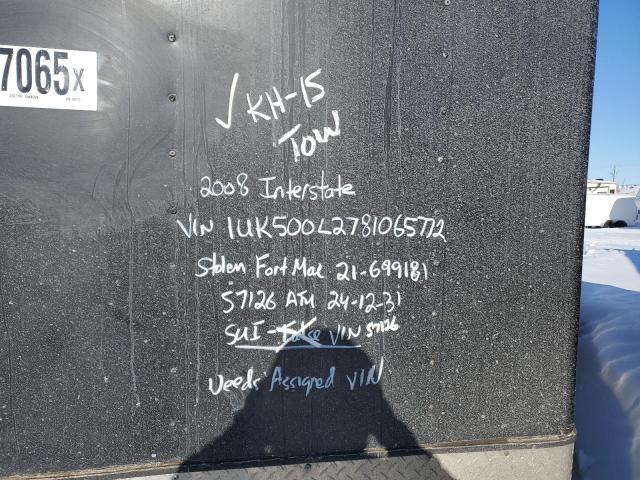 7065x
✓ KH-15
TOW
2008 Interstate
VIN 1UK500L2781065772
Stolen Fort Mac 21-699181
57126 ATM 24-12-31
SUI - False VIN 57126
Needs Assigned VIN